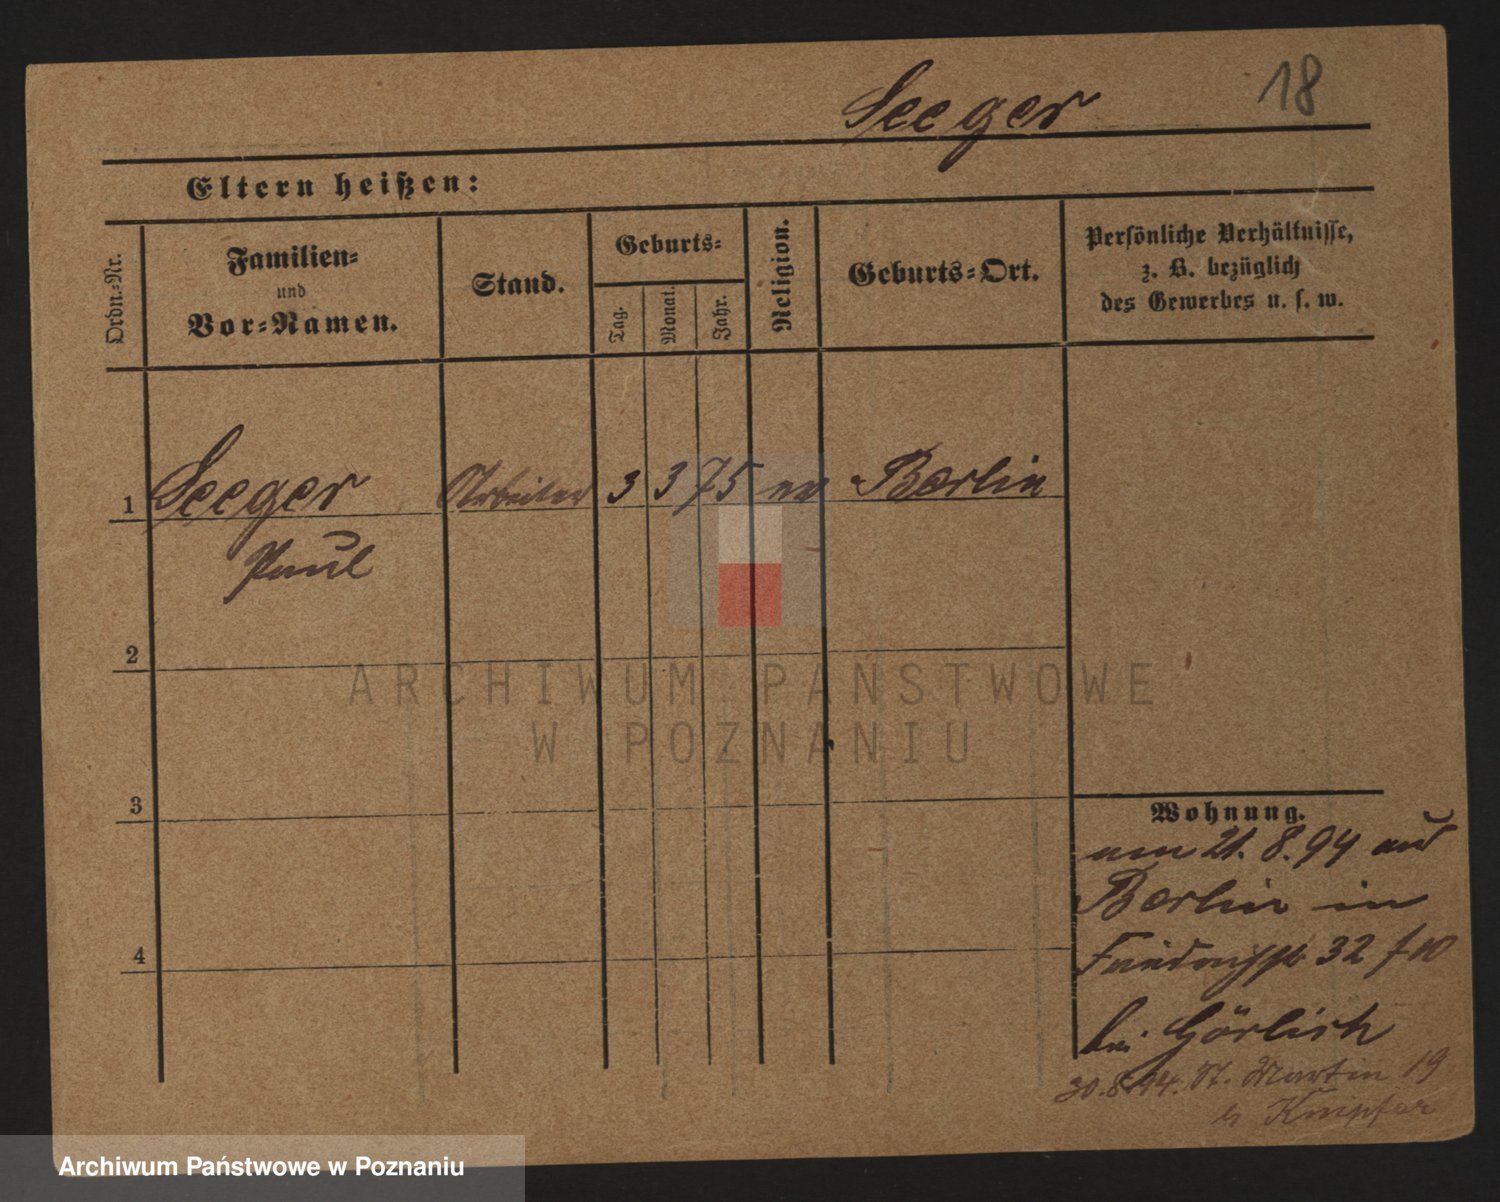 Seeger 18
Eltern heißen:
Ordn.-Nr.
Familien-
und
Vor-Namen.
Stand.
Geburts-
Tag.
Monat.
Jahr.
Religion.
Geburts-Ort.
Persönliche Verhältnisse,
z. B. bezüglich
des Gewerbes u. s. w.
1 Seeger Arbeiter 3 3 75 ev Berlin
Paul
2
ARCHIWUM PAŃSTWOWE
W POZNANIU
3
Wohnung.
am 21. 8. 94 aus
Berlin in
Friedrichstr 32
4
bei Görlich
30.8.94. St. Martin 19
b Knipfer
Archiwum Państwowe w Poznaniu